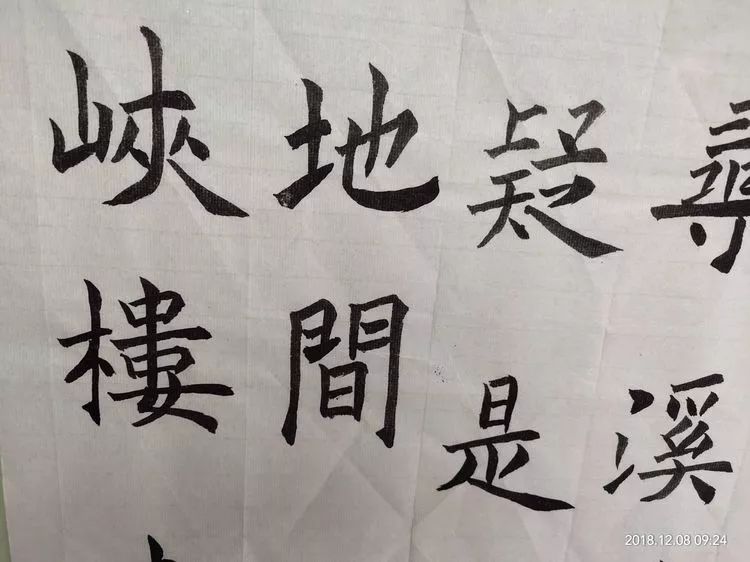 尋溪
疑是
地間
峽樓
2018.12.08 09:24